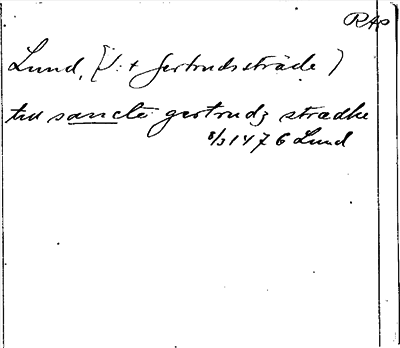 RAp
Lund, (S:t Gertrudssträde)
till sancte gertrudz strædhe
8/3 1476 Lund